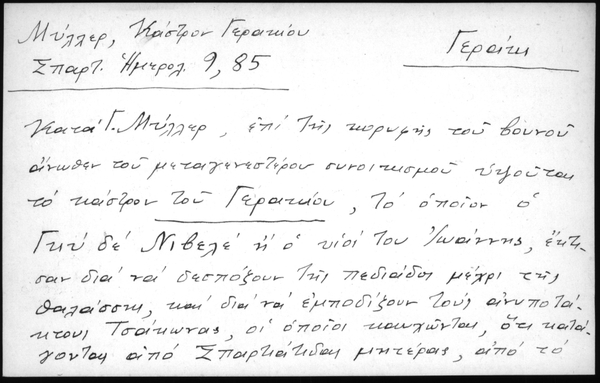 Μύλλερ, Κάστρον Γερακίου
Γεράκι
Σπαρτ. Ἡμερολ. 9, 85
Κατὰ Γ. Μύλλερ, ἐπὶ τῆς κορυφῆς τοῦ βουνοῦ
ἄνωθεν τοῦ μεταγενεστέρου συνοικισμοῦ ὑψοῦται
τὸ κάστρον τοῦ Γερακίου, τὸ ὁποῖον ὁ
Γκὺ δὲ Νιβελὲ ἢ ὁ υἱός του Ἰωάννης, ἔκτι-
σαν διὰ νὰ δεσπόζουν τῆς πεδιάδος μέχρι τῆς
θαλάσσης, καὶ διὰ νὰ ἐμποδίζουν τοὺς ἀνυποτά-
κτους Τσάκωνας, οἱ ὁποῖοι καυχῶνται, ὅτι κατά-
γονται ἀπὸ Σπαρτιάτιδας μητέρας, ἀπὸ τὸ